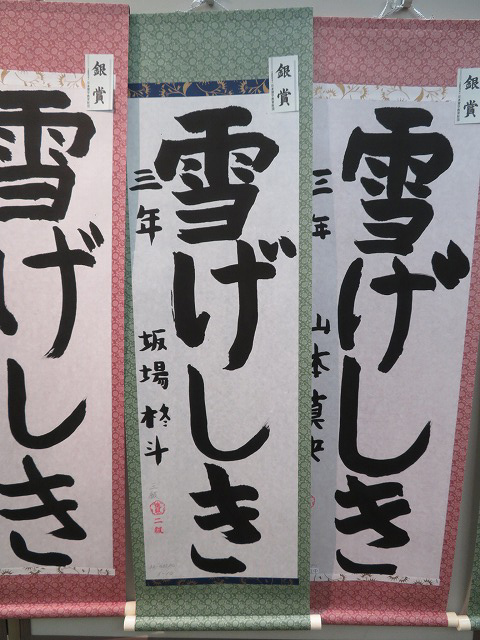 銀賞
雪げしき
三年
山本真央
銀賞
雪げしき
三年
坂場柊斗
二級
銀賞
雪げしき